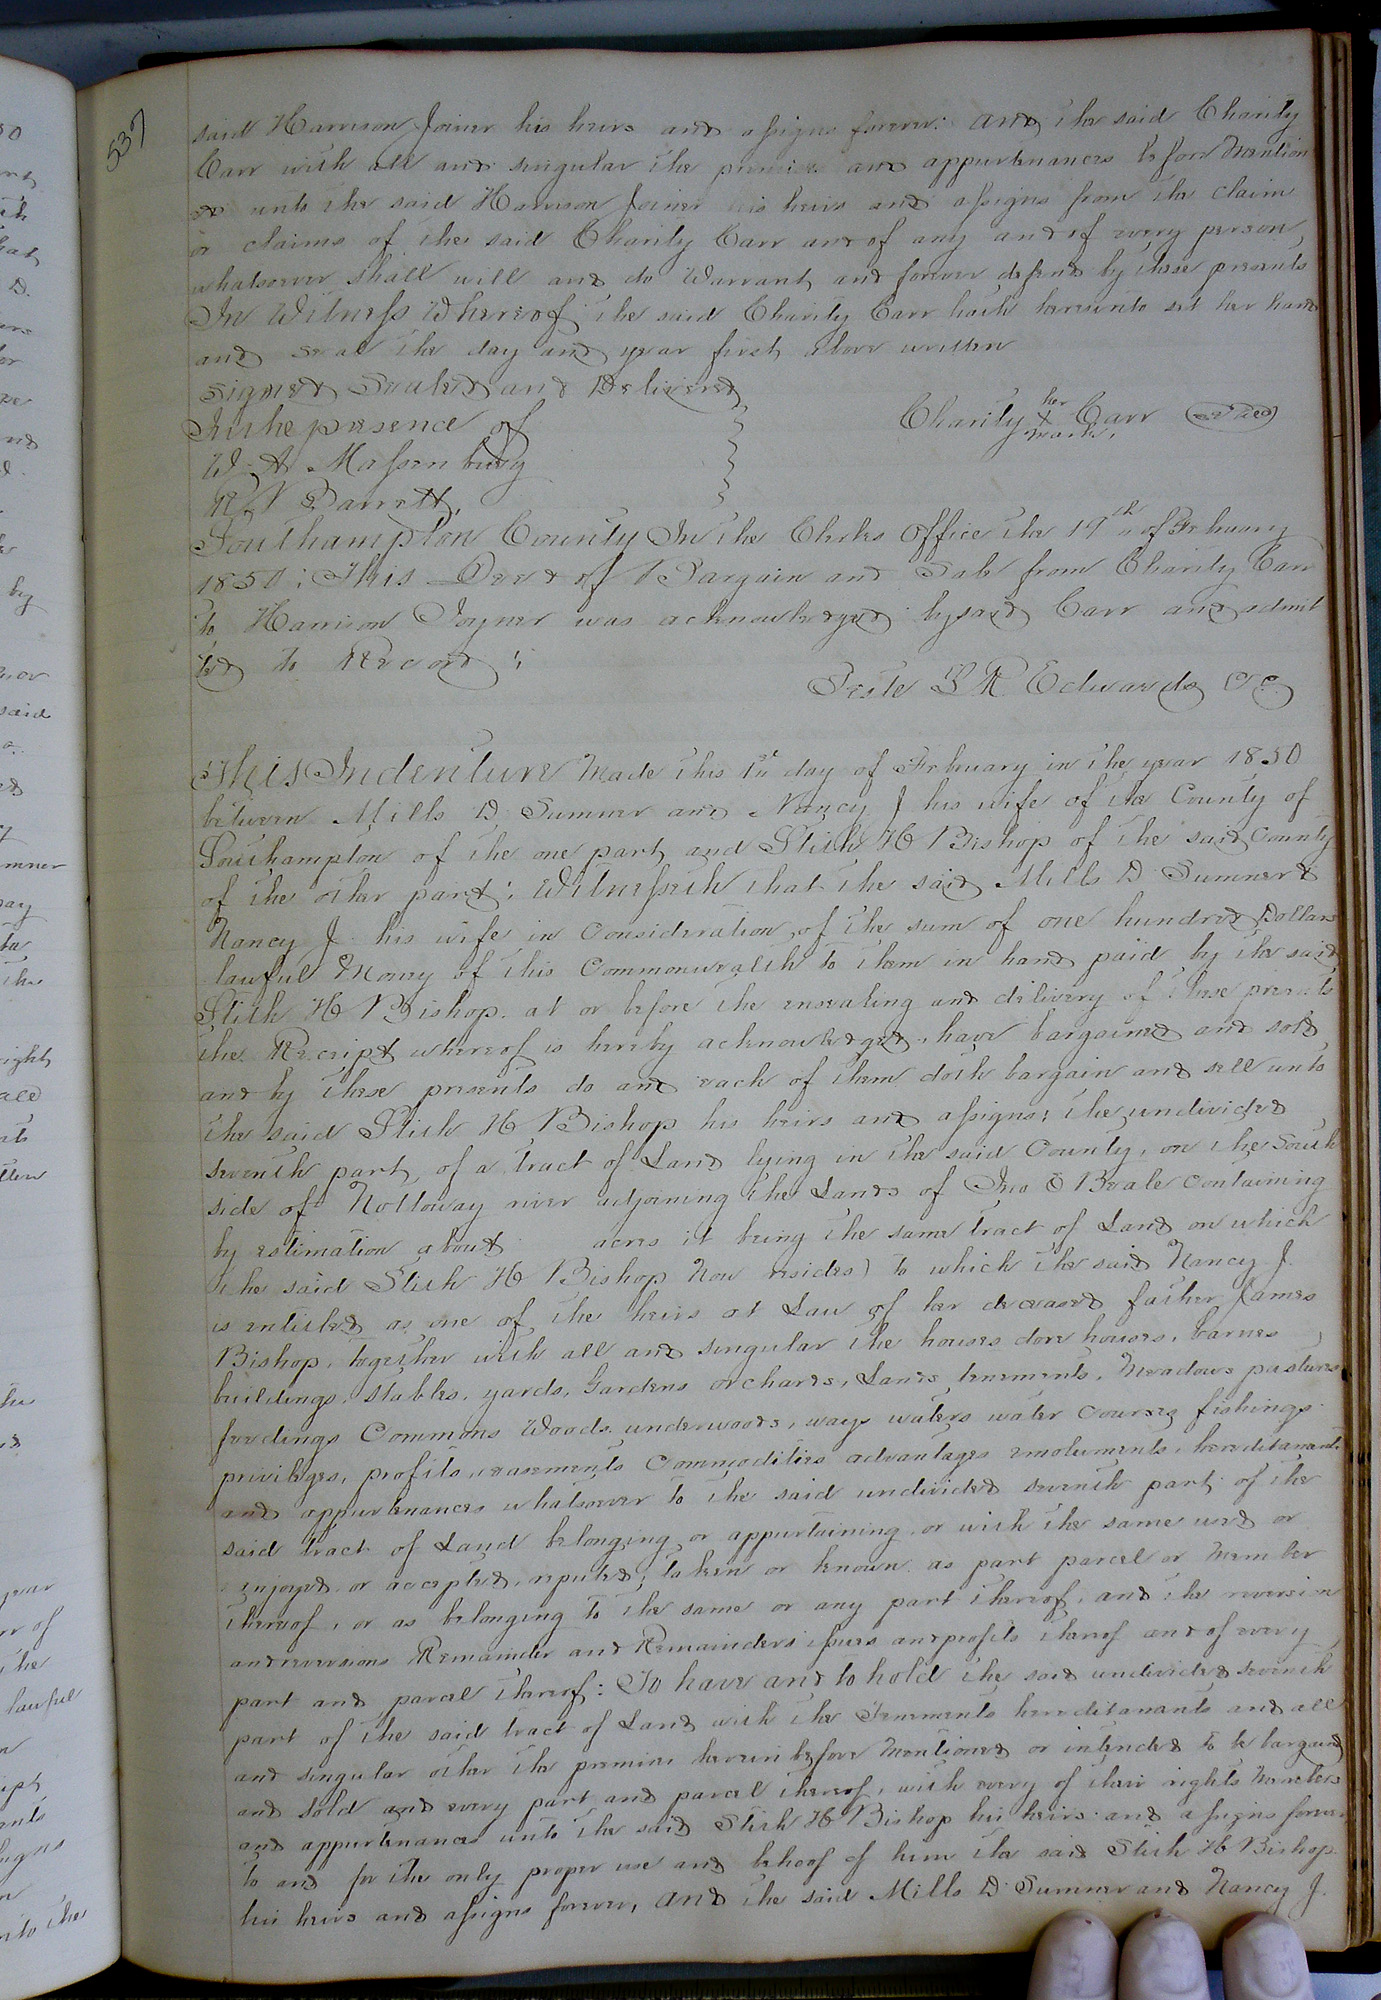 537
said Harrison Joiner his heirs and assigns forever: And the said Charity
Carr with all and singular the premises and appurtenances before mention
ed unto the said Harrison Joiner his heirs and assigns from the claim
or claims of the said Charity Carr and of any and of every person
whatsoever shall will and do Warrant and forever defend by these presents
In Witness Whereof the said Charity Carr hath hereunto set her hand
and seal the day and year first above written
Signed Sealed and Delivered
In the presence of
Charity her X mark Carr Seal
W. A Massenburg
R N Barrett
Southampton County In the Clerks Office the 19th of February
1850: This Deed of Bargain and Sale from Charity Carr
to Harrison Joyner was acknowledged by said Carr and admit
ted to Record;
Teste L R Edwards CC
This Indenture Made this 1st day of February in the year 1850
between Mills D Sumner and Nancy J his wife of the County of
Southampton of the one part and Stith H Bishop of the said County
of the other part; Witnesseth that the said Mills D Sumner &
Nancy J his wife in Consideration of the sum of one hundred Dollars
lawful Money of this Commonwealth to them in hand paid by the said
Stith H Bishop. at or before the ensealing and delivery of these presents
the Receipt whereof is hereby acknowledged, have bargained and sold
and by these presents do and each of them doth bargain and sell unto
the said Stith H Bishop his heirs and assigns; the undivided
seventh part of a tract of Land lying in the said County, on the South
side of Nottoway river adjoining the Lands of Jno E Beale Containing
by estimation about acres it being the same tract of Land on which
the said Stith H Bishop Now resides) to which the said Nancy J.
is entitled as one of the heirs at Law of her deceased father James
Bishop, together with all and singular the houses dove houses, barnes
buildings, stables, yards, Gardens orchards, Lands tenements, Meadows pastures
feedings Commons Woods underwoods, ways waters water courses fishings
privileges, profits, easements Commodities advantages emoluments, hereditaments
and appurtenances whatsoever to the said undivided seventh part of the
said tract of Land belonging or appurtaining, or with the same used or
enjoyed. or accepted, reputed, taken or known as part parcel or Member
thereof, or as belonging to the same or any part thereof, and the reversion
and reversions Remainder and Remainders issues and profits thereof and of every
part and parcel thereof: To have and to hold the said undivided seventh
part of the said tract of Land with the Tenements hereditaments and all
and singular other the premises herein before Mentioned or intended to be bargained
and sold and every part and parcel thereof, with every of their rights Members
and appurtenances unto the said Stith H Bishop his heirs and assigns forever
to and for the only proper use and behoof of him the said Stith H Bishop
his heirs and assigns forever, And the said Mills D Sumner and Nancy J.